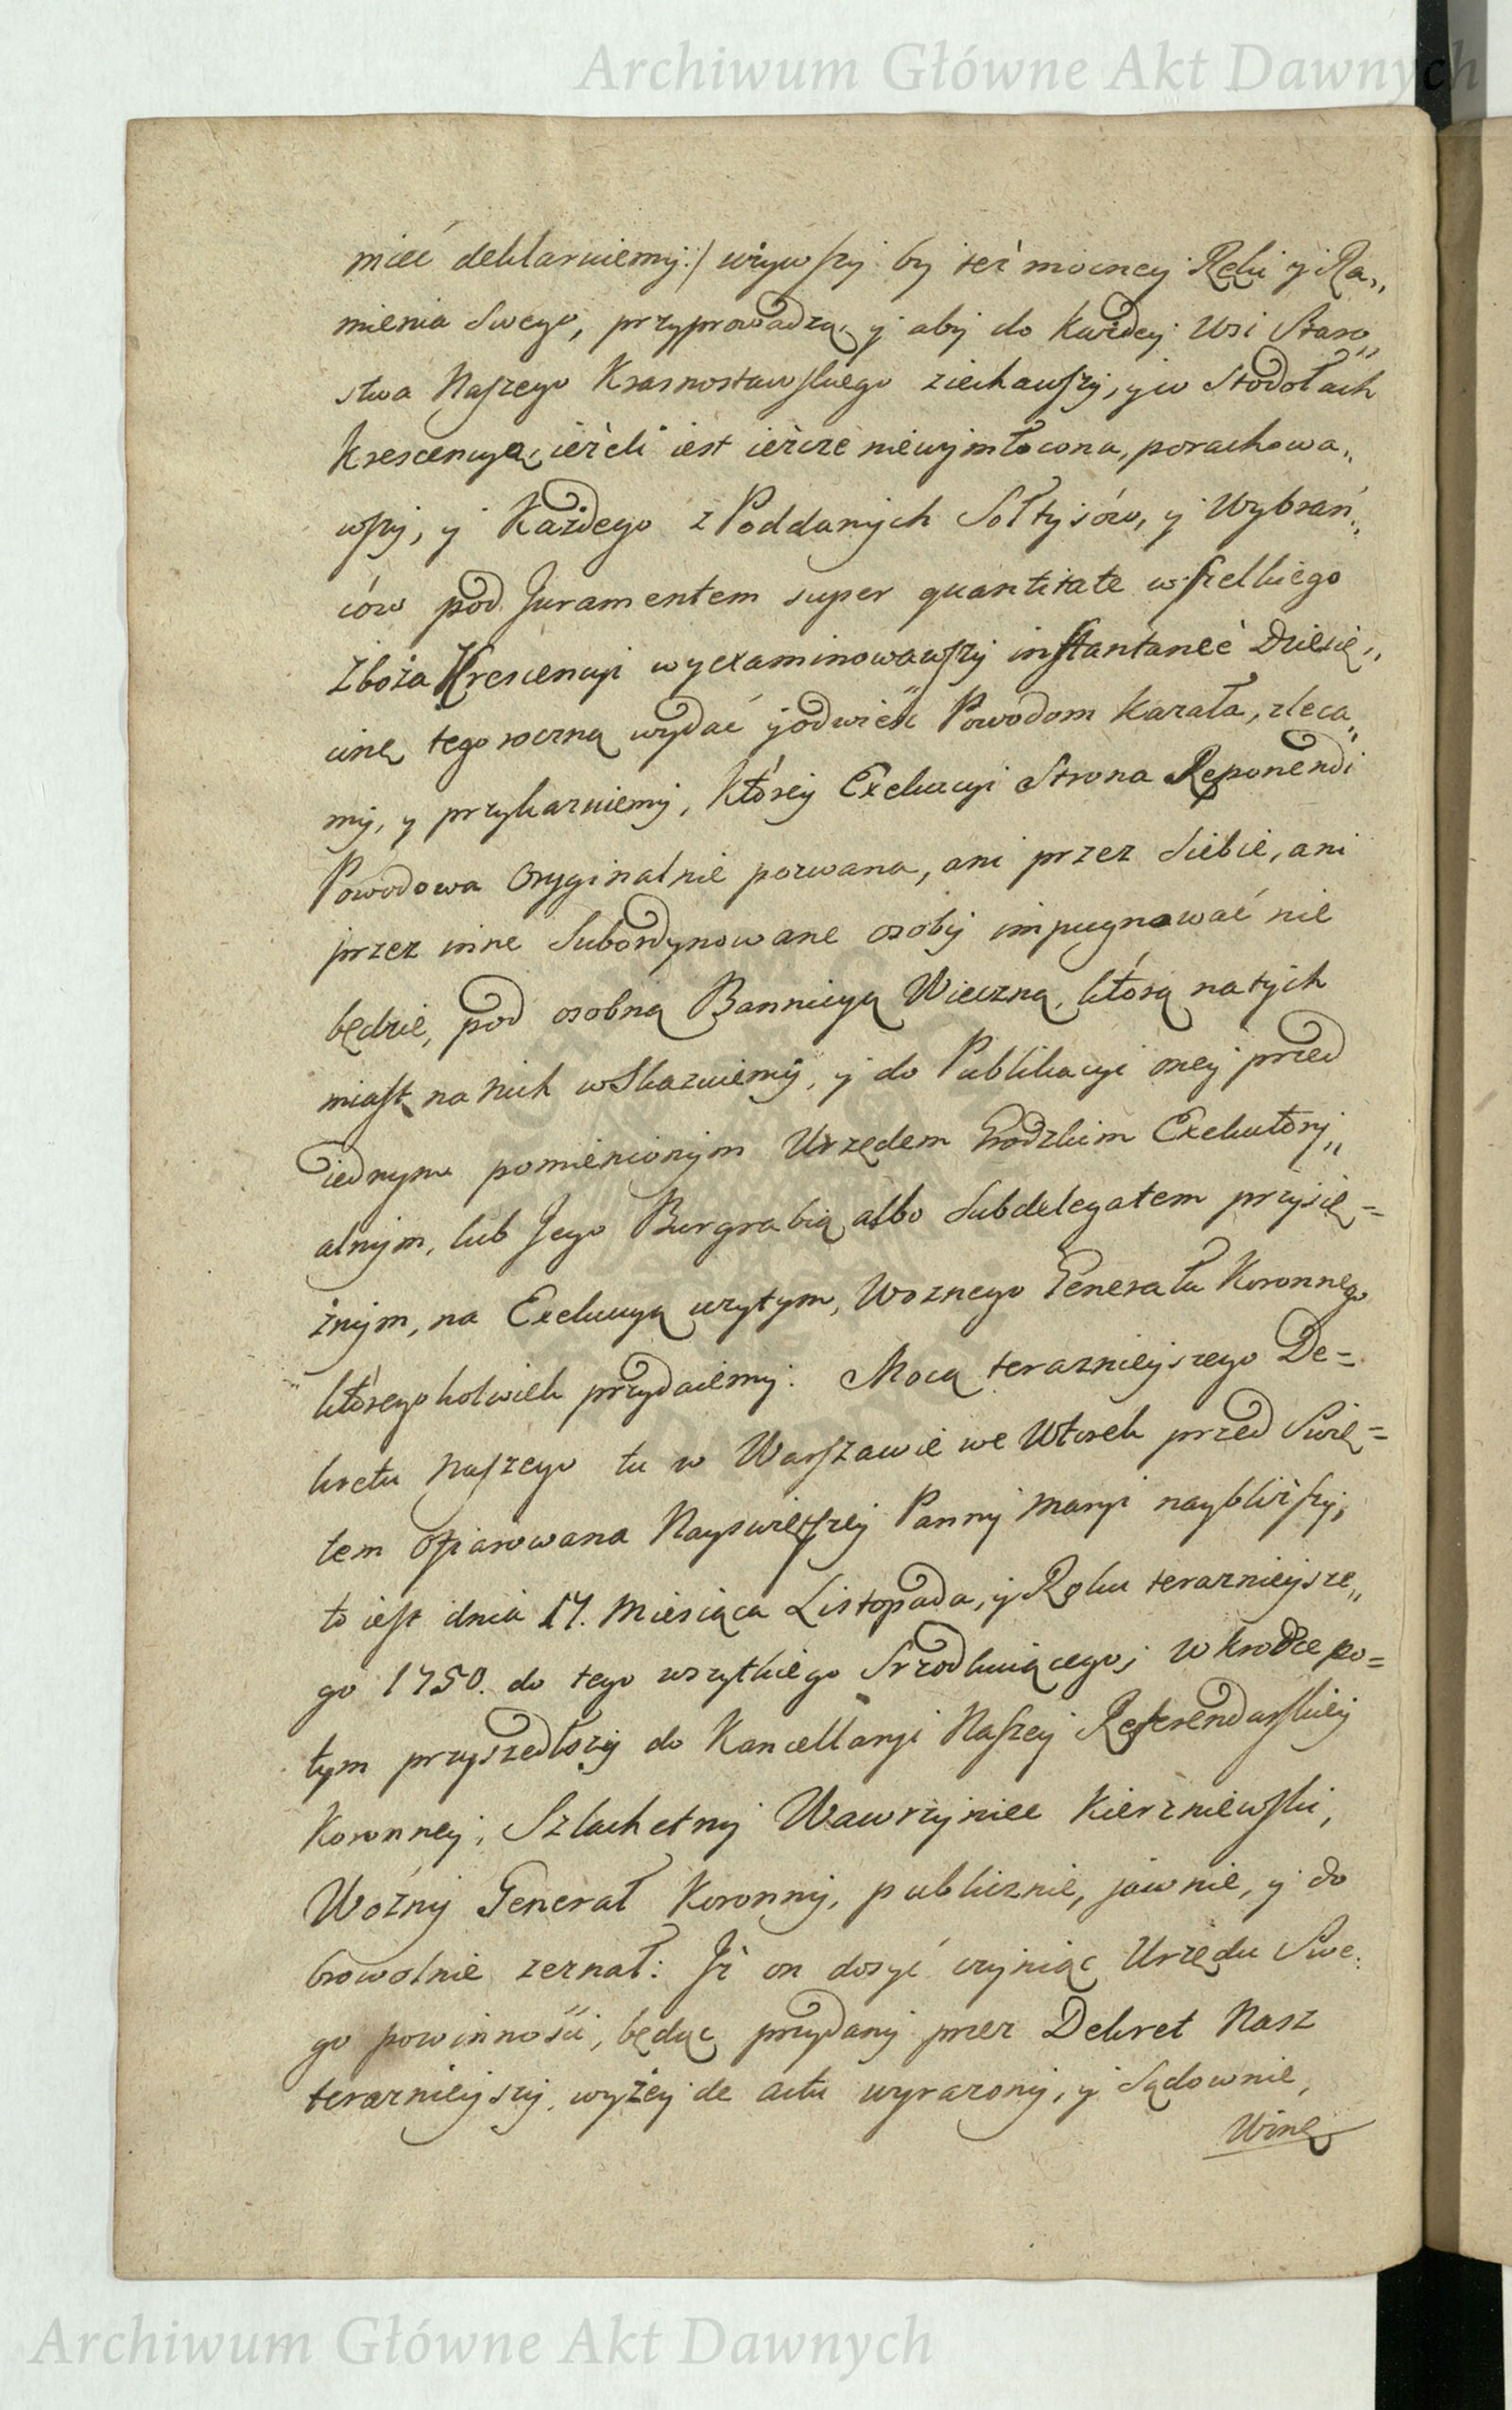 Archiwum Główne Akt Dawnych
mieć deklaruiemy:/ wziąwszy by też mocney Ręki y Ra„
mienia Swego, przyprowadzą, y aby do Każdey Wsi Staro„
stwa Naszego Krasnostawskiego ziechawszy, y w Stodołach
Krescencyą, ieżeli iest ieszcze niewymłocona, porachowa„
wszy, y Każdego z Poddanych Sołtysów, y Wybrań„
ców pod Juramentem super quantitate wszelkiego
Zboża Krescencyi wyexaminowawszy instantaneé Dziesię„
cinę tegoroczną wydać y odwieść Powodom kazała, zleca„
my, y przykazuiemy, Którey Exekucyi Strona Reponendi
Powodowa Oryginalnie pozwana, ani przez Siebie, ani
przez inne Subordynowane osoby impugnować nie
będzie, pod osobną Bannicyą Wieczną, którą natych
miast na nich wskazuiemy, y do Publikacyi oney przed
iednym pomienionym Urzędem Grodzkim Exekutory„
alnym, lub Jego Burgrabią albo Subdelegatem przysię=
żnym, na Exekucyą wzytym, Woznego Generała Koronnego
któregokolwiek przydaiemy. Mocą terazniejszego De=
kretu Naszego tu w Warszawie we Wtorek przed Świę=
tem Ofiarowana Nayświętszey Panny Maryi naybliższy,
to iest dnia 17. Miesiąca Listopada, y Roku terazniejsze„
go 1750. do tego wszytkiego Srzodkuiącego; w krotce po=
tym przyszedłszy do Kancellaryi Naszey Referendarskiey
Koronney, Szlachetny Wawrzyniec Kierzniewski,
Woźny Generał Koronny, publicznie, jawnie, y do
browolnie zeznał: Jż on dosyć czyniąc Urzędu Swe„
go powinności, będąc przydany przez Dekret Nasz
terazniejszy, wyżey de actu wyrazony, y Sądownie,
Winę
Archiwum Główne Akt Dawnych